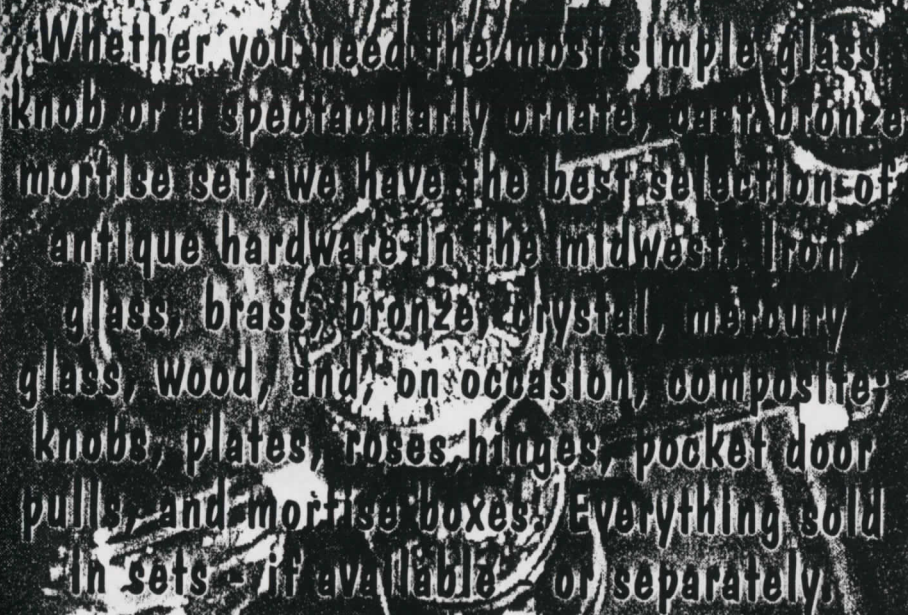 Whether you need the most simple glass
knob or a spectacularly ornate, cast bronze
mortise set, we have the best selection of
antique hardware in the midwest. Iron,
glass, brass, bronze, crystal, mercury
glass, wood, and, on occasion, composite;
knobs, plates, roses, hinges, pocket door
pulls, and mortise boxes. Everything sold
in sets - if available - or separately.